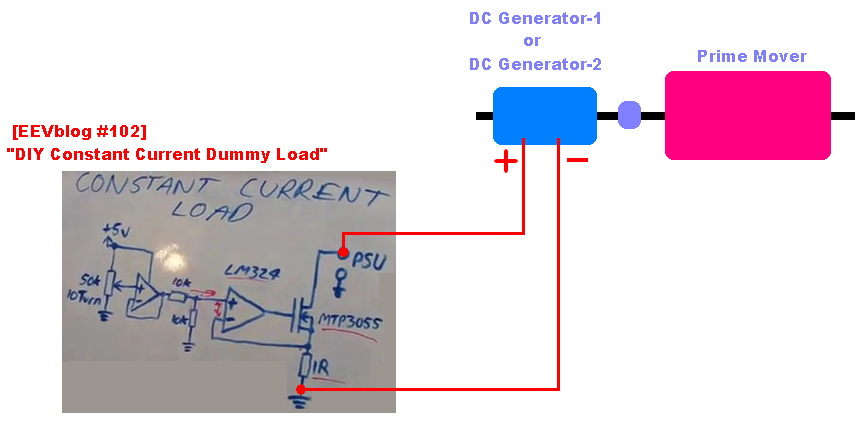 DC Generator-1
or
DC Generator-2
Prime Mover
+ −
[EEVblog #102]
"DIY Constant Current Dummy Load"
CONSTANT CURRENT
LOAD
+5V
50k
10Turn
+
-
10k
10k
LM324
+
-
PSU
MTP3055
1R